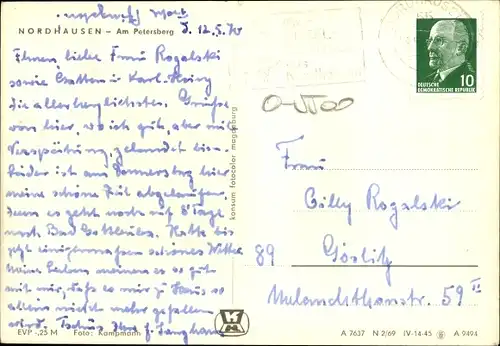 NORDHAUSEN – Am Petersberg
d. 12.5.70
Ihnen, liebe Frau Rogalski
sowie Gatten u. Karl-Heinz
die allerherzlichsten Grüße
von hier, wo ich gut, aber mit
Verspätung, gelandet bin.
Leider ist am Donnerstag hier
meine schöne Zeit abgelaufen
denn es geht noch auf 8 Tage
nach Bad Gottleuba. Hatte bis
jetzt einigermaßen schönes Wetter
Meine Lieben meinen es so gut
mit mir, daß es mir zu Haus so
allein nicht mehr gefallen
wird. Tschüs Ihre
EVP -,25 M Foto: Kampmann
konsum fotocolor magdeburg
10
DEUTSCHE
DEMOKRATISCHE REPUBLIK
Frau
Cilly Rogalski
89 Görlitz
Melanchthonstr. 59 II
A 7637 N 2/69 IV-14-45 A 9494